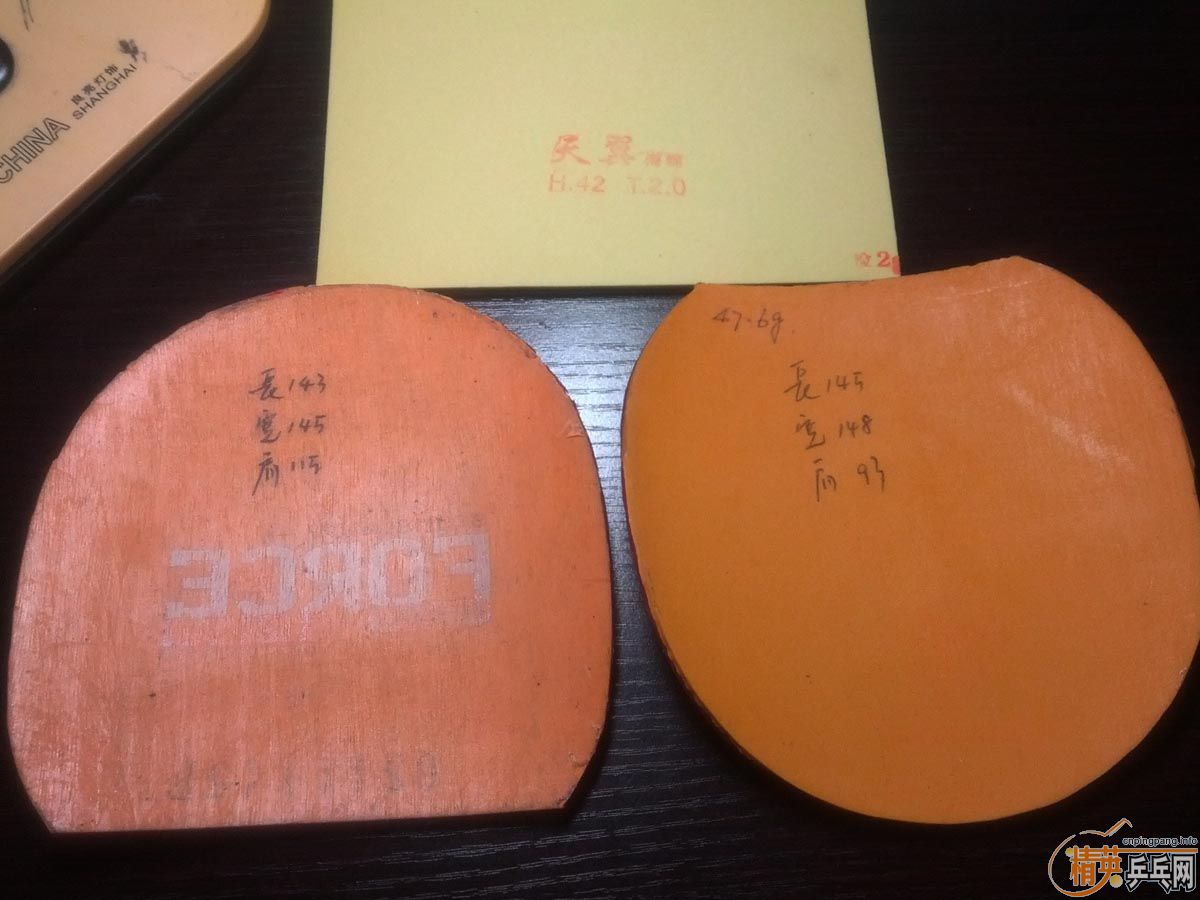 CHINA
良亮灯饰
SHANGHAI
天翼
H.42 T.2.0
2
長143
宽145
肩115
FORCE
47.6g
長145
宽148
肩93
cnpingpang.info
精英乒乓网